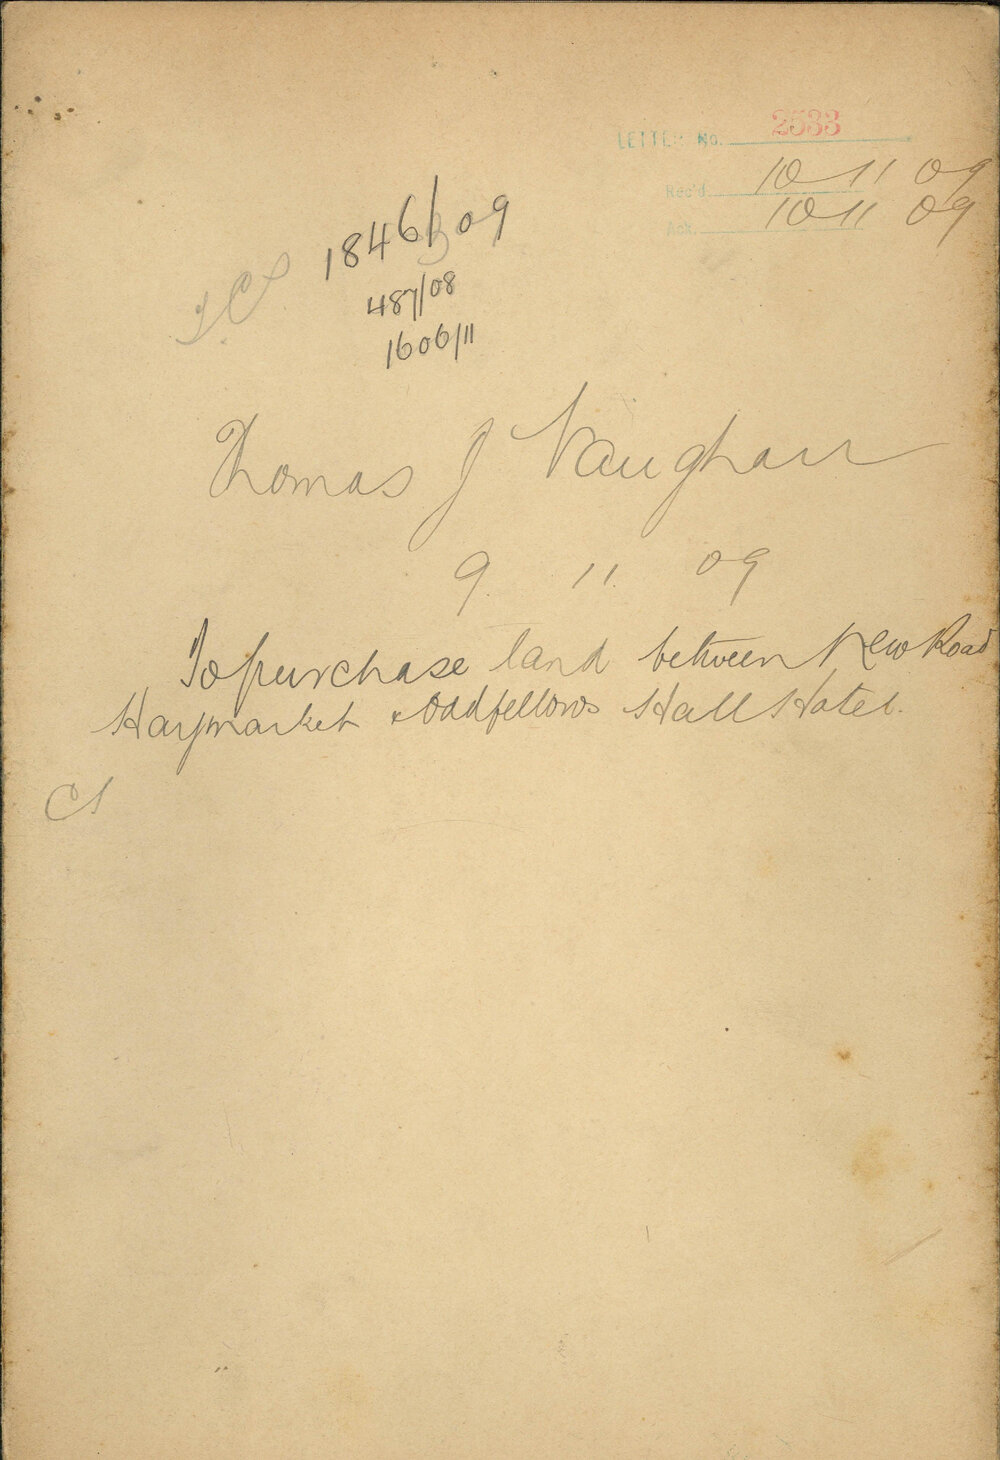 LETTER No. 2533
Rec'd. 10 11 09
Ack. 10 11 09
1846/09
487/08
1606/11
Thomas J Vaughan
9. 11. 09
To purchase land between New Road
Haymarket & Oddfellows Hall Hotel.